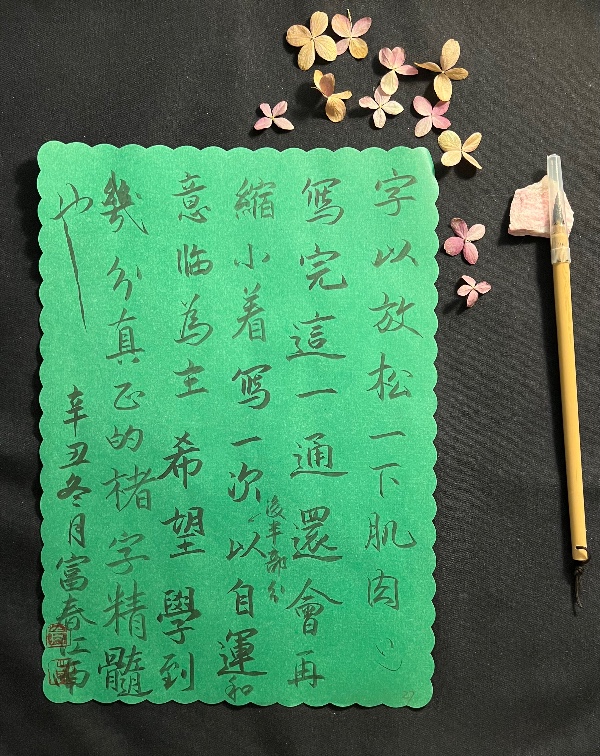 字以放松一下肌肉
寫完這一通還會再
縮小着寫一次以自運和
後半部分
意临為主希望學到
幾分真正的褚字精髓
也
辛丑冬月富春江南